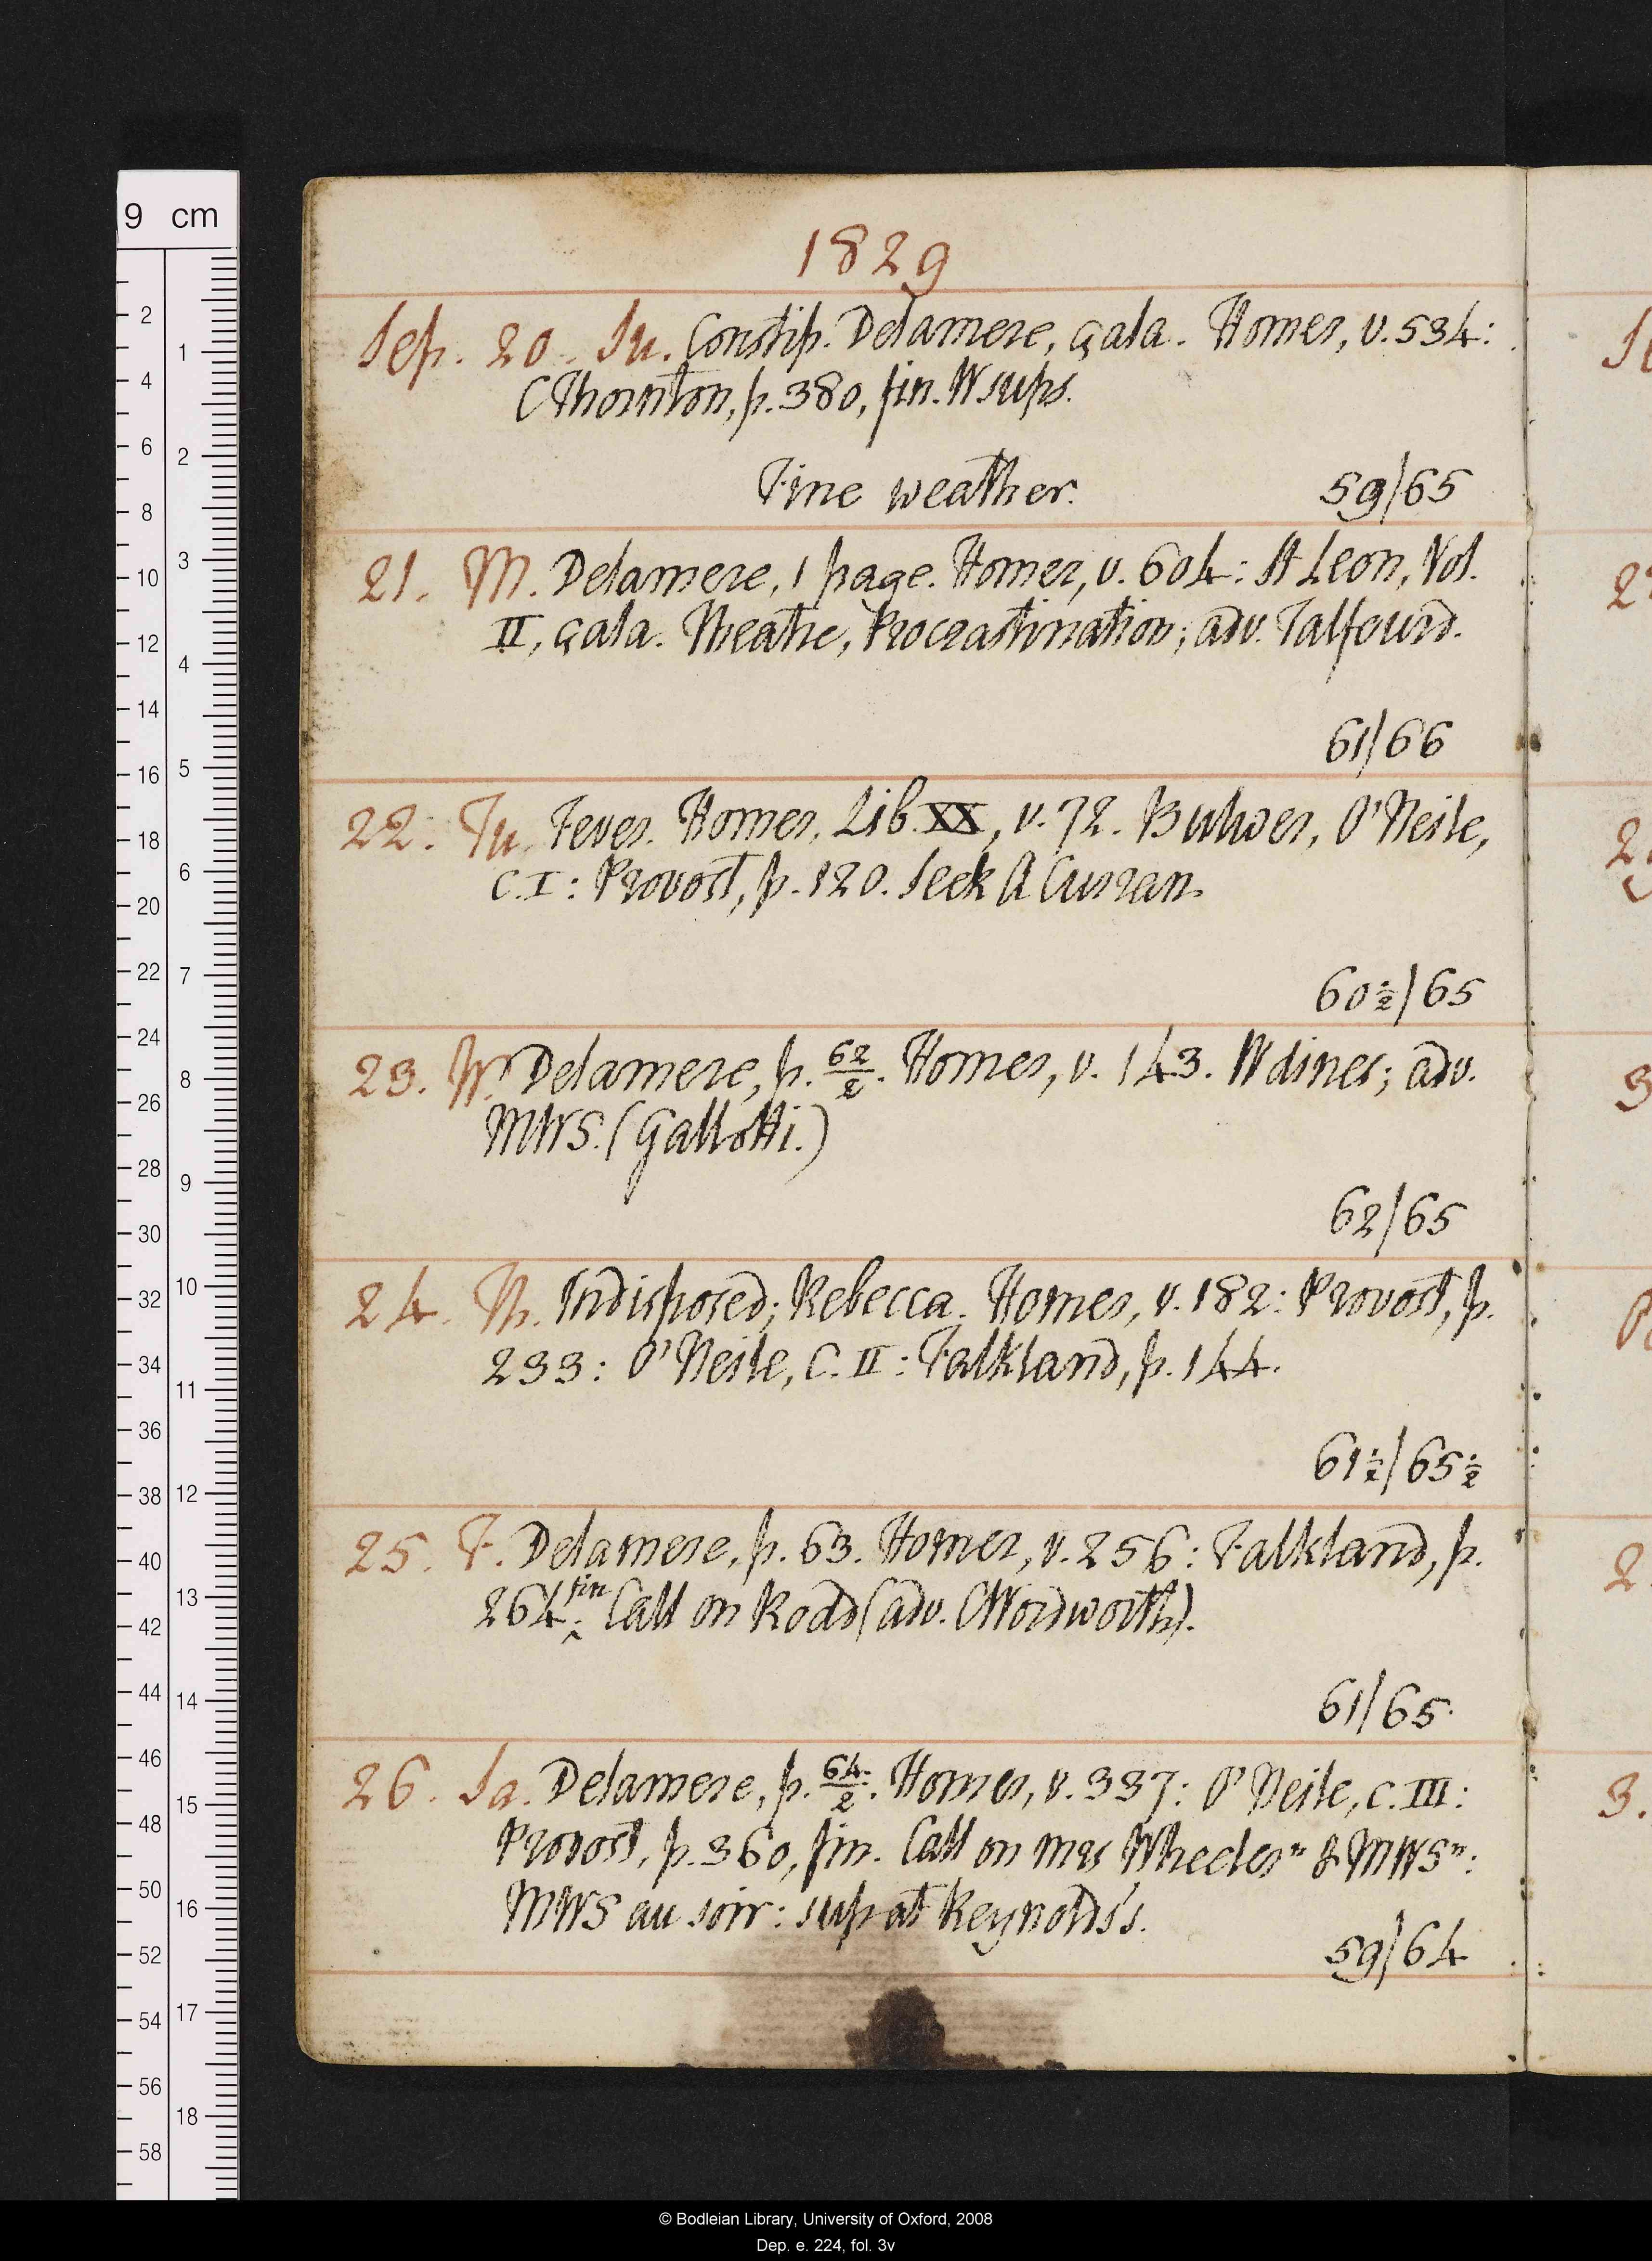 9 cm
1829
Sep. 20. Su. Constip. Delamere, çala. Homer, v. 534:
C Thornton, p. 380, fin. W sups.
Fine weather. 59/65
21. M. Delamere, 1 page. Homer, v. 604: St Leon, Vol.
II, çala. Theatre, Procrastination; adv. Talfourd.
61/66
22. Tu. Fever. Homer, Lib. XX, v. 72. Bulwer, O'Neile,
C. I: Provost, p. 120. Seek A Curran.
60½/65
23. W. Delamere, p. 62/2. Homer, v. 143. W dines; adv.
MWS. (Gallotti.)
62/65
24. Th. Indisposed; Rebecca. Homer, v. 182: Provost, p.
233: O'Neile, C. II: Falkland, p. 144.
61½/65½
25. F. Delamere, p. 63. Homer, v. 256: Falkland, p.
264, fin. Call on Rodd (adv. C Wordworth).
61/65
26. Sa. Delamere, p. 64/2. Homer, v. 337: O'Neile, C. III:
Provost, p. 360, fin. Call on Mrs Wheeler n & MWS n:
MWS au soir: sup at Reynolds's.
59/64
© Bodleian Library, University of Oxford, 2008
Dep. e. 224, fol. 3v